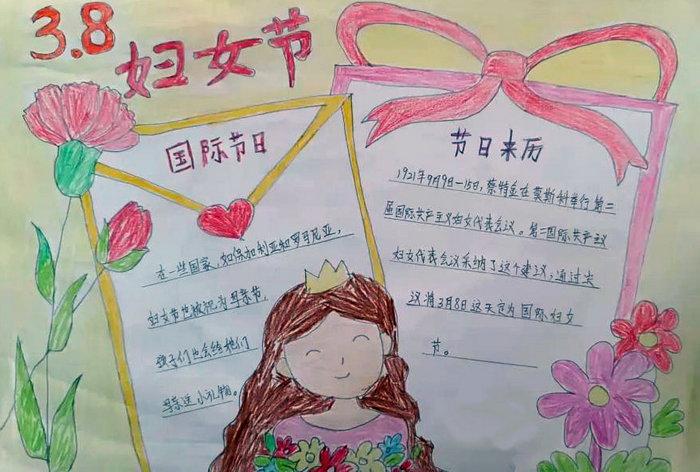 3.8
妇女节
国际节日
在一些国家，如保加利亚和罗马尼亚，
妇女节也被视为母亲节，
孩子们也会给她们
母亲送小礼物。
节日来历
1921年9月9日-15日，蔡特金在莫斯科举行第二
届国际共产主义妇女代表会议。第二国际共产主义
妇女代表会议采纳了这个建议，通过决
议将3月8日这天定为国际妇女
节。